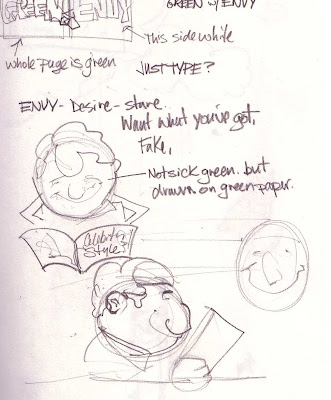 GREEN W/ ENVY
GREEN ENVY
this side white
whole page is green
JUST TYPE?
ENVY - Desire - stare..
Want what you've got,
Fake,
Not sick green. but
drawn on green paper.
Celebrity
Style